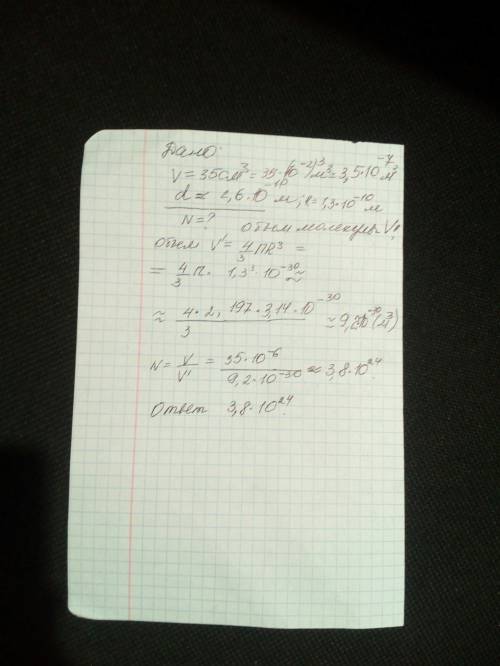 Дано:
V = 35 см³ = 35·(10⁻²)³ м³ = 3,5·10⁻⁷ м³
d ≈ 2,6·10⁻¹⁰ м; R = 1,3·10⁻¹⁰ м
N = ? объем молекулы V'
объем V' = 4/3 ПR³ =
= 4/3 П · 1,3³ · 10⁻³⁰ ≈
≈ 4·2,197·3,14·10⁻³⁰ / 3 ≈ 9,2·10⁻³⁰ (м³)
N = V/V' = 35·10⁻⁶ / 9,2·10⁻³⁰ ≈ 3,8·10²⁴
Ответ 3,8·10²⁴